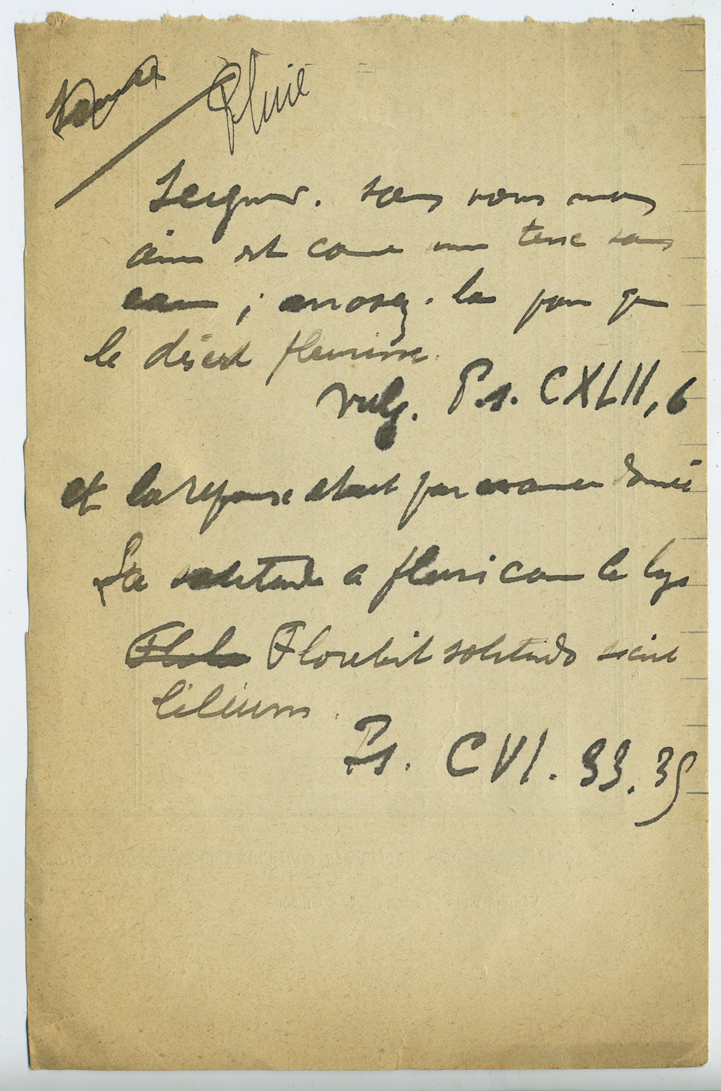 Pluie
Seigneur. sans vous mon
âme est come une terre sans
eau ; arrosez-la pour que
le désert fleurisse.
Vulg. Ps. CXLII, 6
et la réponse était par avance donnée
La solitude a fleuri come le lys
Florebit solitudo sicut
lilium.
Ps. CVI. 33.35